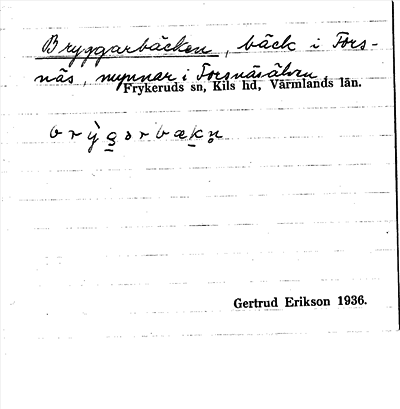 Bryggarbäcken, bäck i Fors-
näs, mynnar i Forsnäsälven,
Frykeruds sn, Kils hd, Värmlands län.
brỳg̲ɔrbæk̲n̥
Gertrud Erikson 1936.